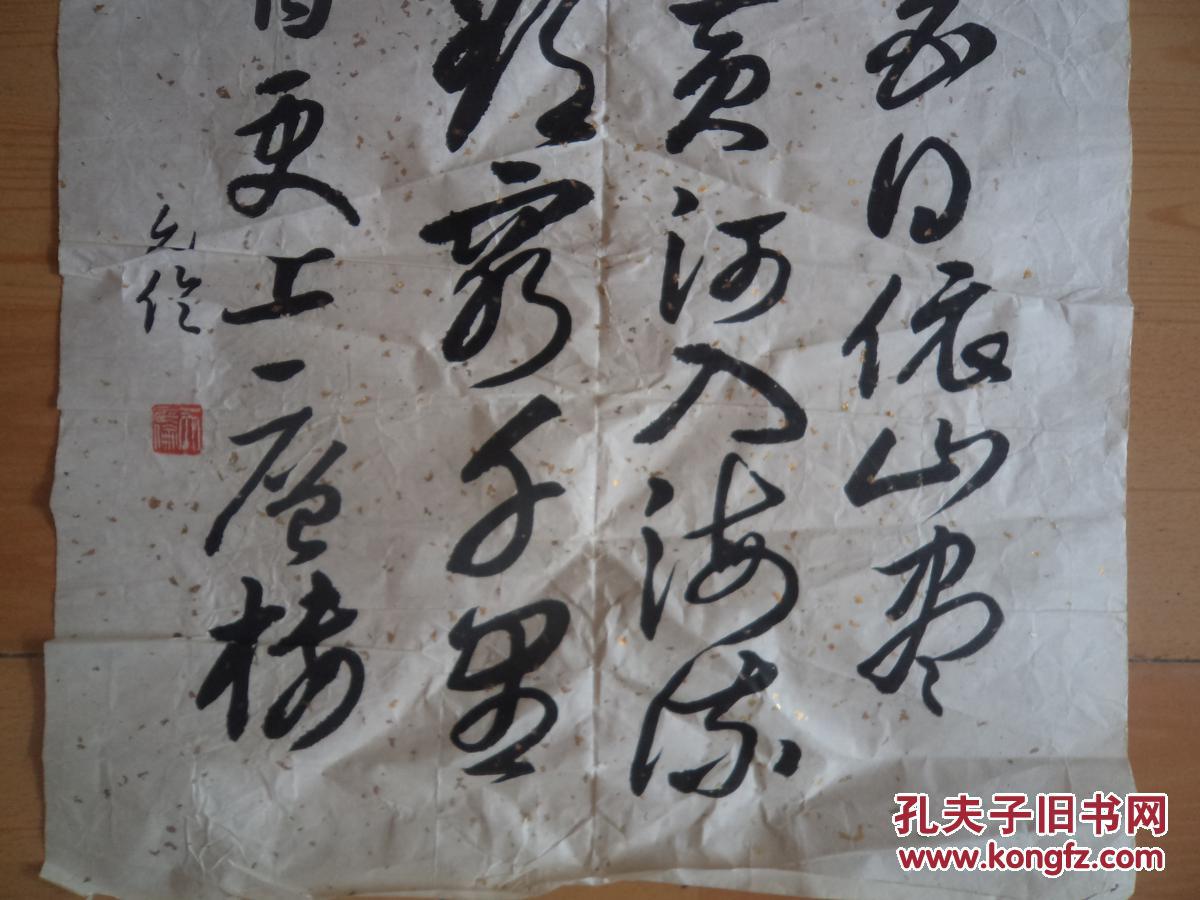 白日依山盡
黃河入海流
欲窮千里
目更上一層樓
孔夫子旧书网
www.kongfz.com